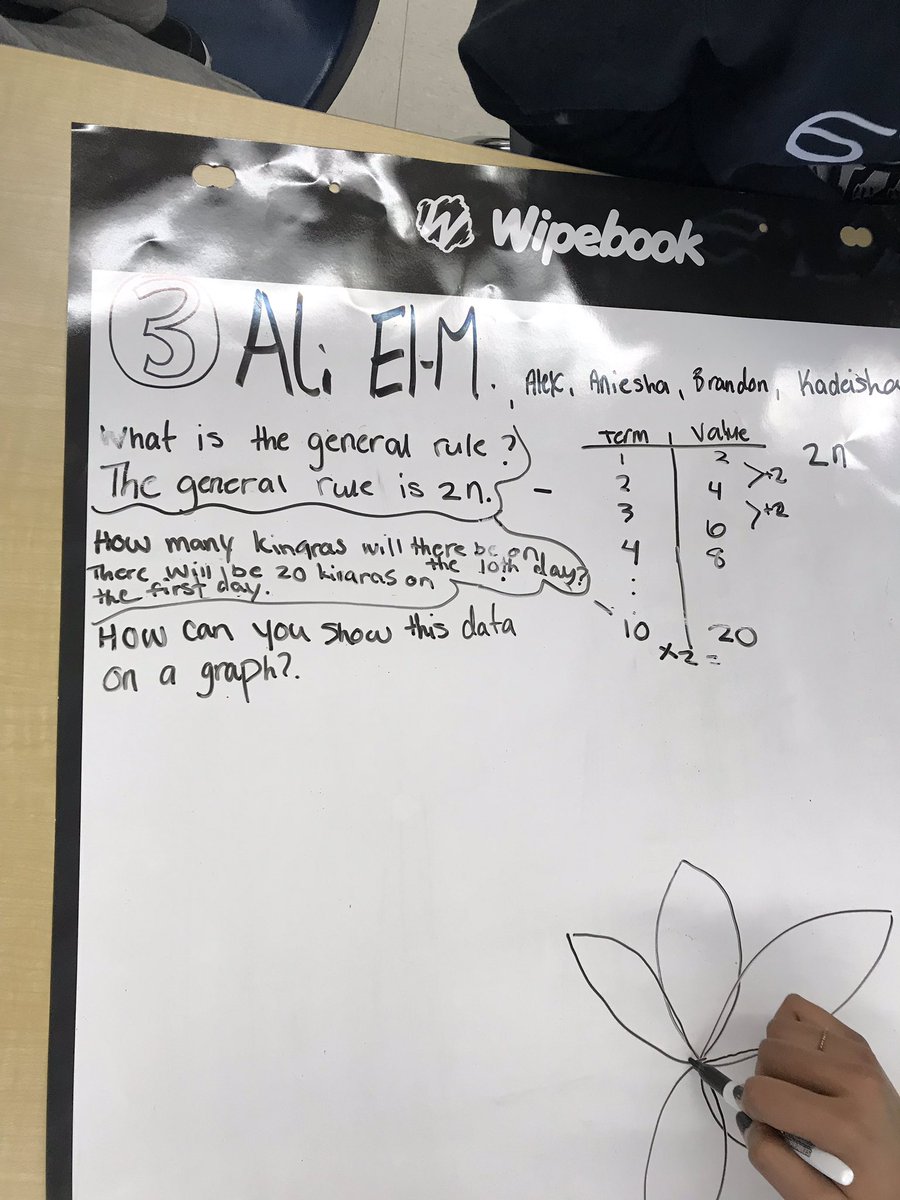 Wipebook
3 Ali El-M. , Alek, Aniesha, Brandon, Kadeisha
What is the general rule?
The general rule is 2n. -
How many kingras will there be on
the 10th day?
There will be 20 kiraras on
the first day.
How can you show this data
on a graph?.
Term Value
1 2
2 4
3 6
4 8
10 20
x2 =
>+2
>+2
2n